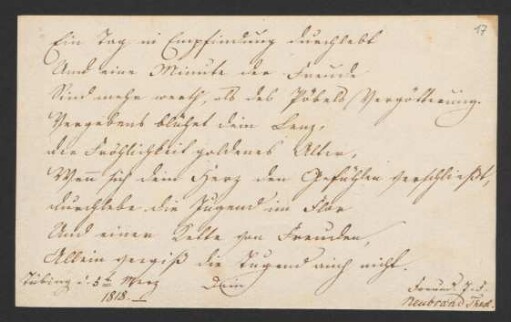 17
Ein Tag in Empfindung durchlebt
Und eine Minute der Freude
Sind mehr werth, als des Pöbels Vergötterung.
Vergebens blühet dein Lenz,
die Fröhlichkeit goldenes Alter,
Wenn sich dein Herz den Gefühlen verschließt,
durchlebe die Jugend im Flor
Und einen Kette von Freuden,
Allein vergiß die Tugend auch nicht.
Tübing d. 5n Merz
1818.
Dein
Freund
Neubrand Theol.